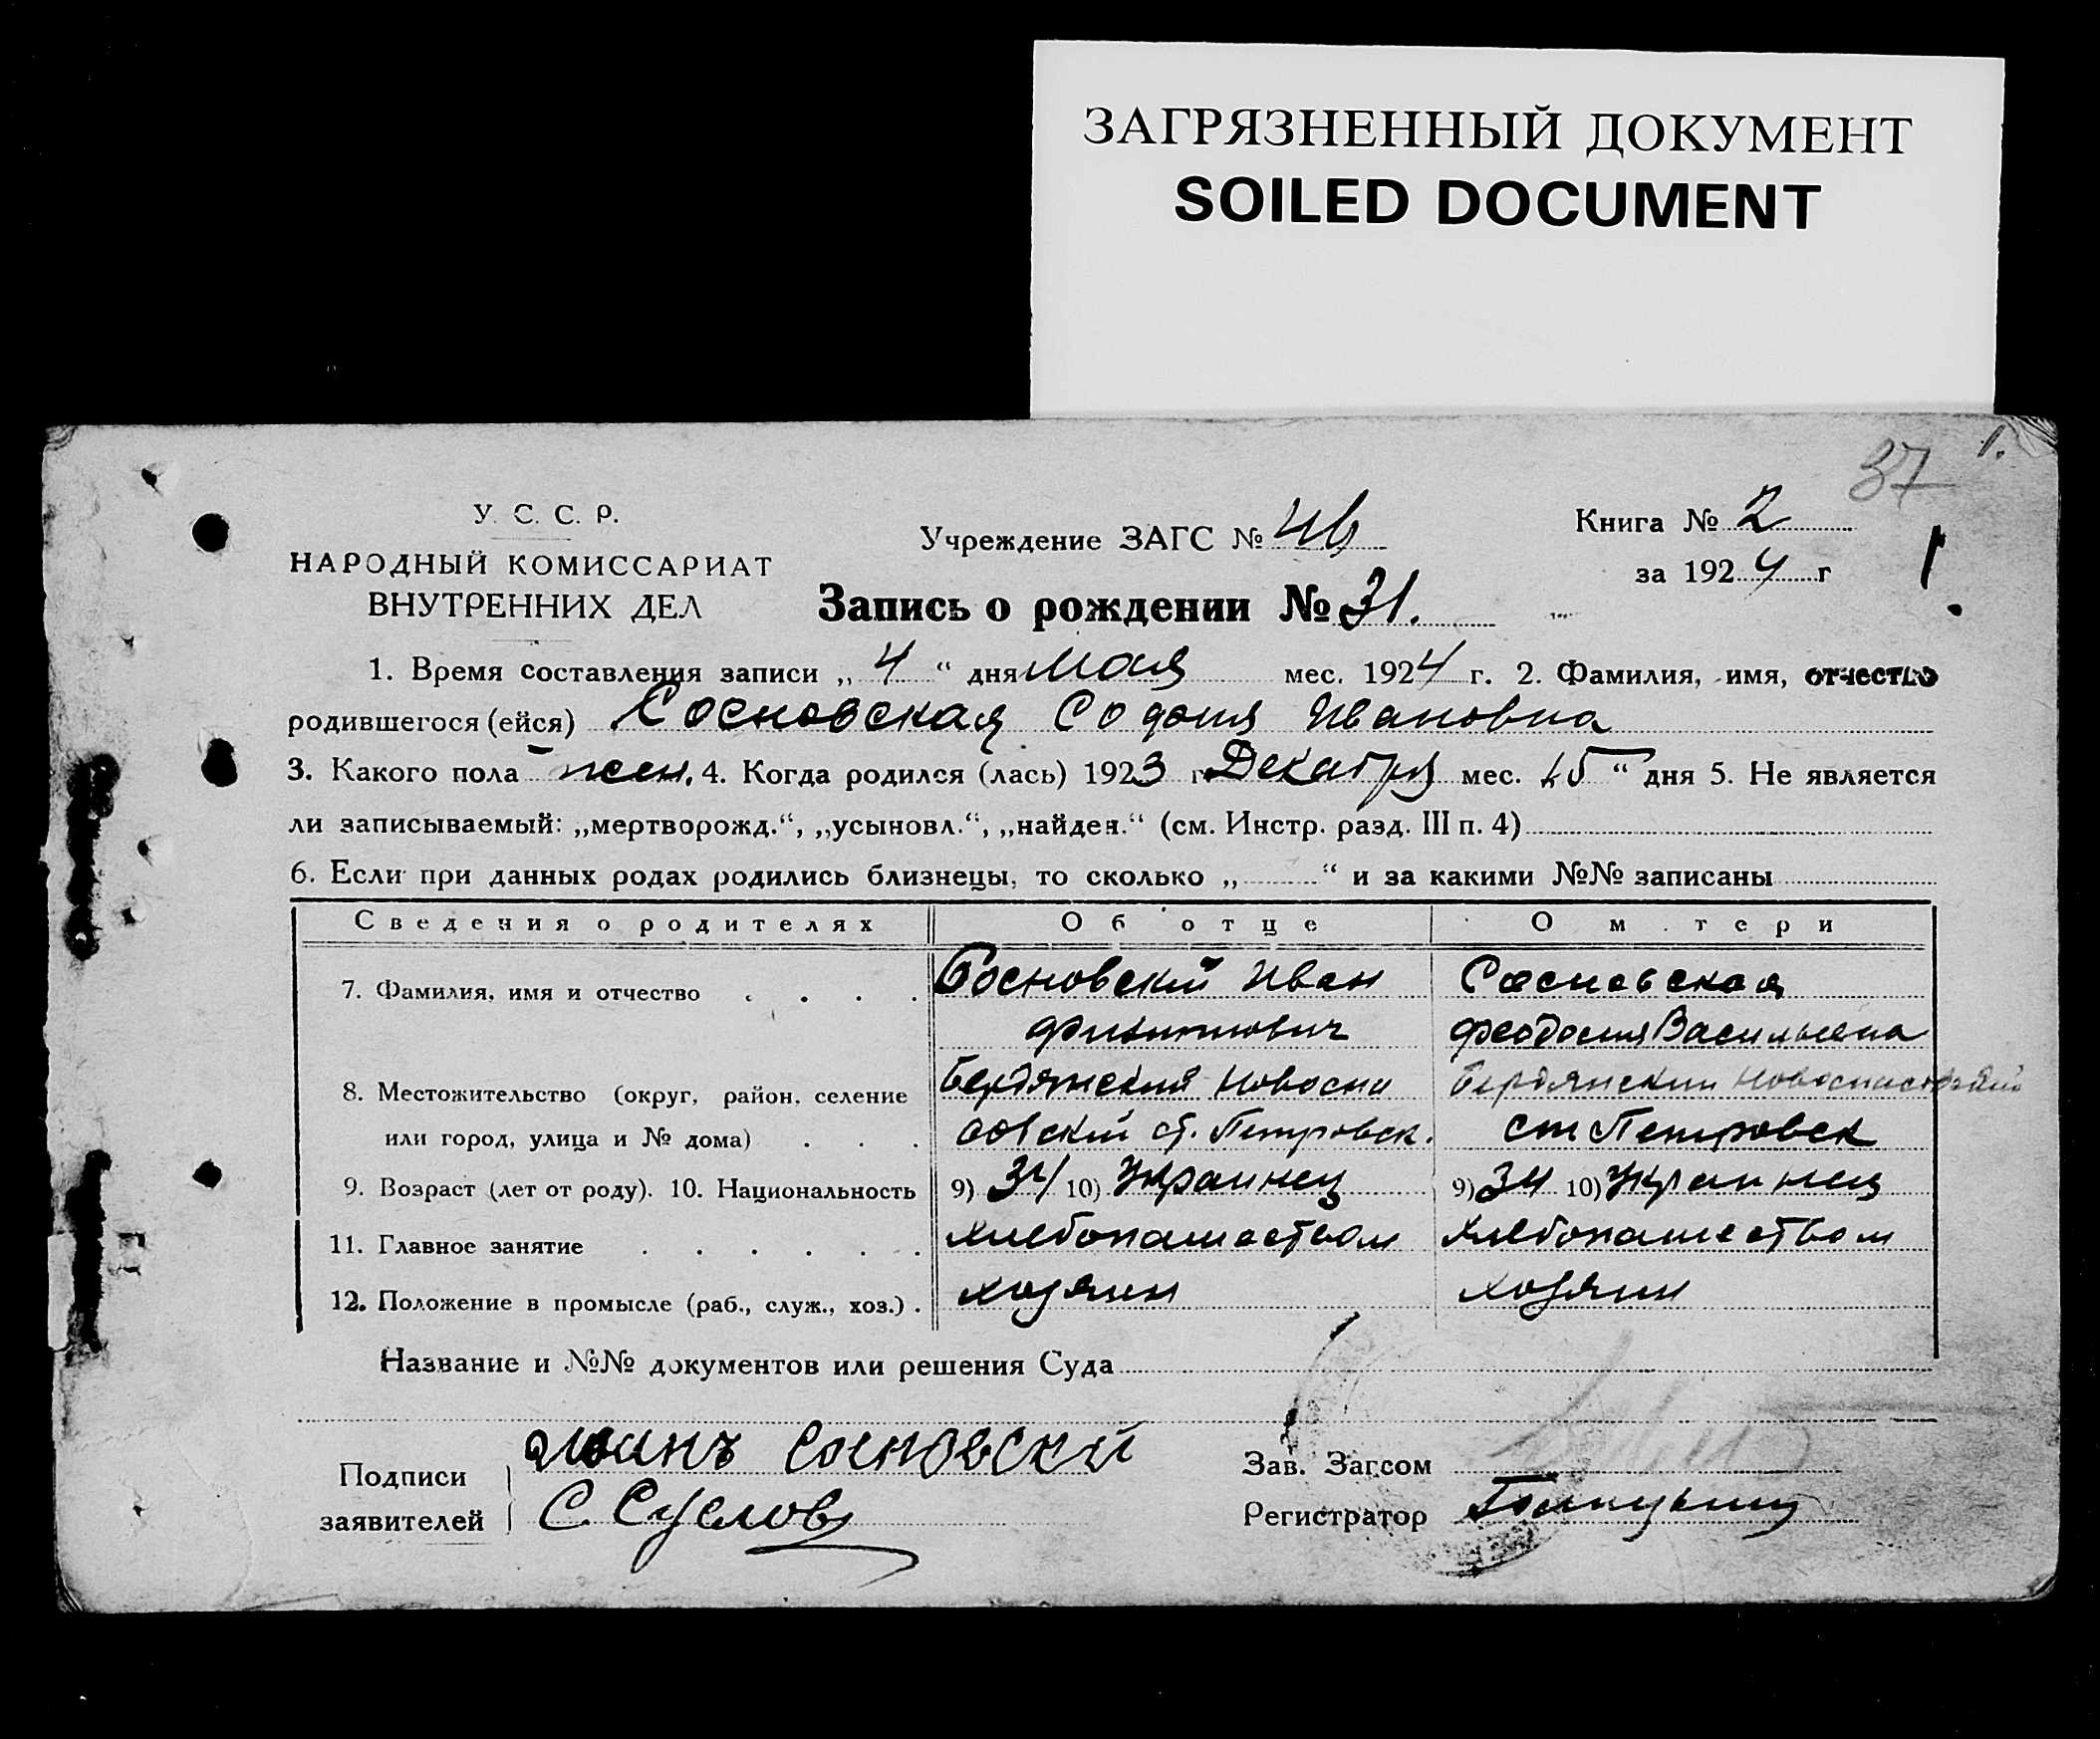 ЗАГРЯЗНЕННЫЙ ДОКУМЕНТ
SOILED DOCUMENT
37
1.
У. С. С. Р.
НАРОДНЫЙ КОМИССАРИАТ
ВНУТРЕННИХ ДЕЛ
Учреждение ЗАГС №
Книга № 2
за 1924 г
Запись о рождении № 31.
1. Время составления записи „ 4 “ дня Мая мес. 1924 г. 2. Фамилия, имя, отчество
родившегося (ейся) Сосновская София Ивановна
3. Какого пола жен. 4. Когда родился (лась) 1923 г Декабря мес. 15 “ дня 5. Не является
ли записываемый: „мертворожд.“, „усыновл.“, „найден.“ (см. Инстр. разд. III п. 4)
6. Если при данных родах родились близнецы, то сколько „ “ и за какими №№ записаны
Сведения о родителях Об отце О м тери
7. Фамилия, имя и отчество Сосновский Иван Сосновская
Филиппович Феодосия Васильевна
8. Местожительство (округ, район, селение Бердянский Новоспа Бердянский Новоспасовский
или город, улица и № дома) совский ст. Петровск. ст Петровск
9. Возраст (лет от роду). 10. Национальность 9) 34 10) Украинец 9) 34 10) Украинец
11. Главное занятие Хлебопашеством Хлебопашеством
12. Положение в промысле (раб., служ., хоз.) хозяин хозяин
Название и №№ документов или решения Суда
Подписи
заявителей
Сосновский
С. Суслов
Зав. Загсом
Регистратор